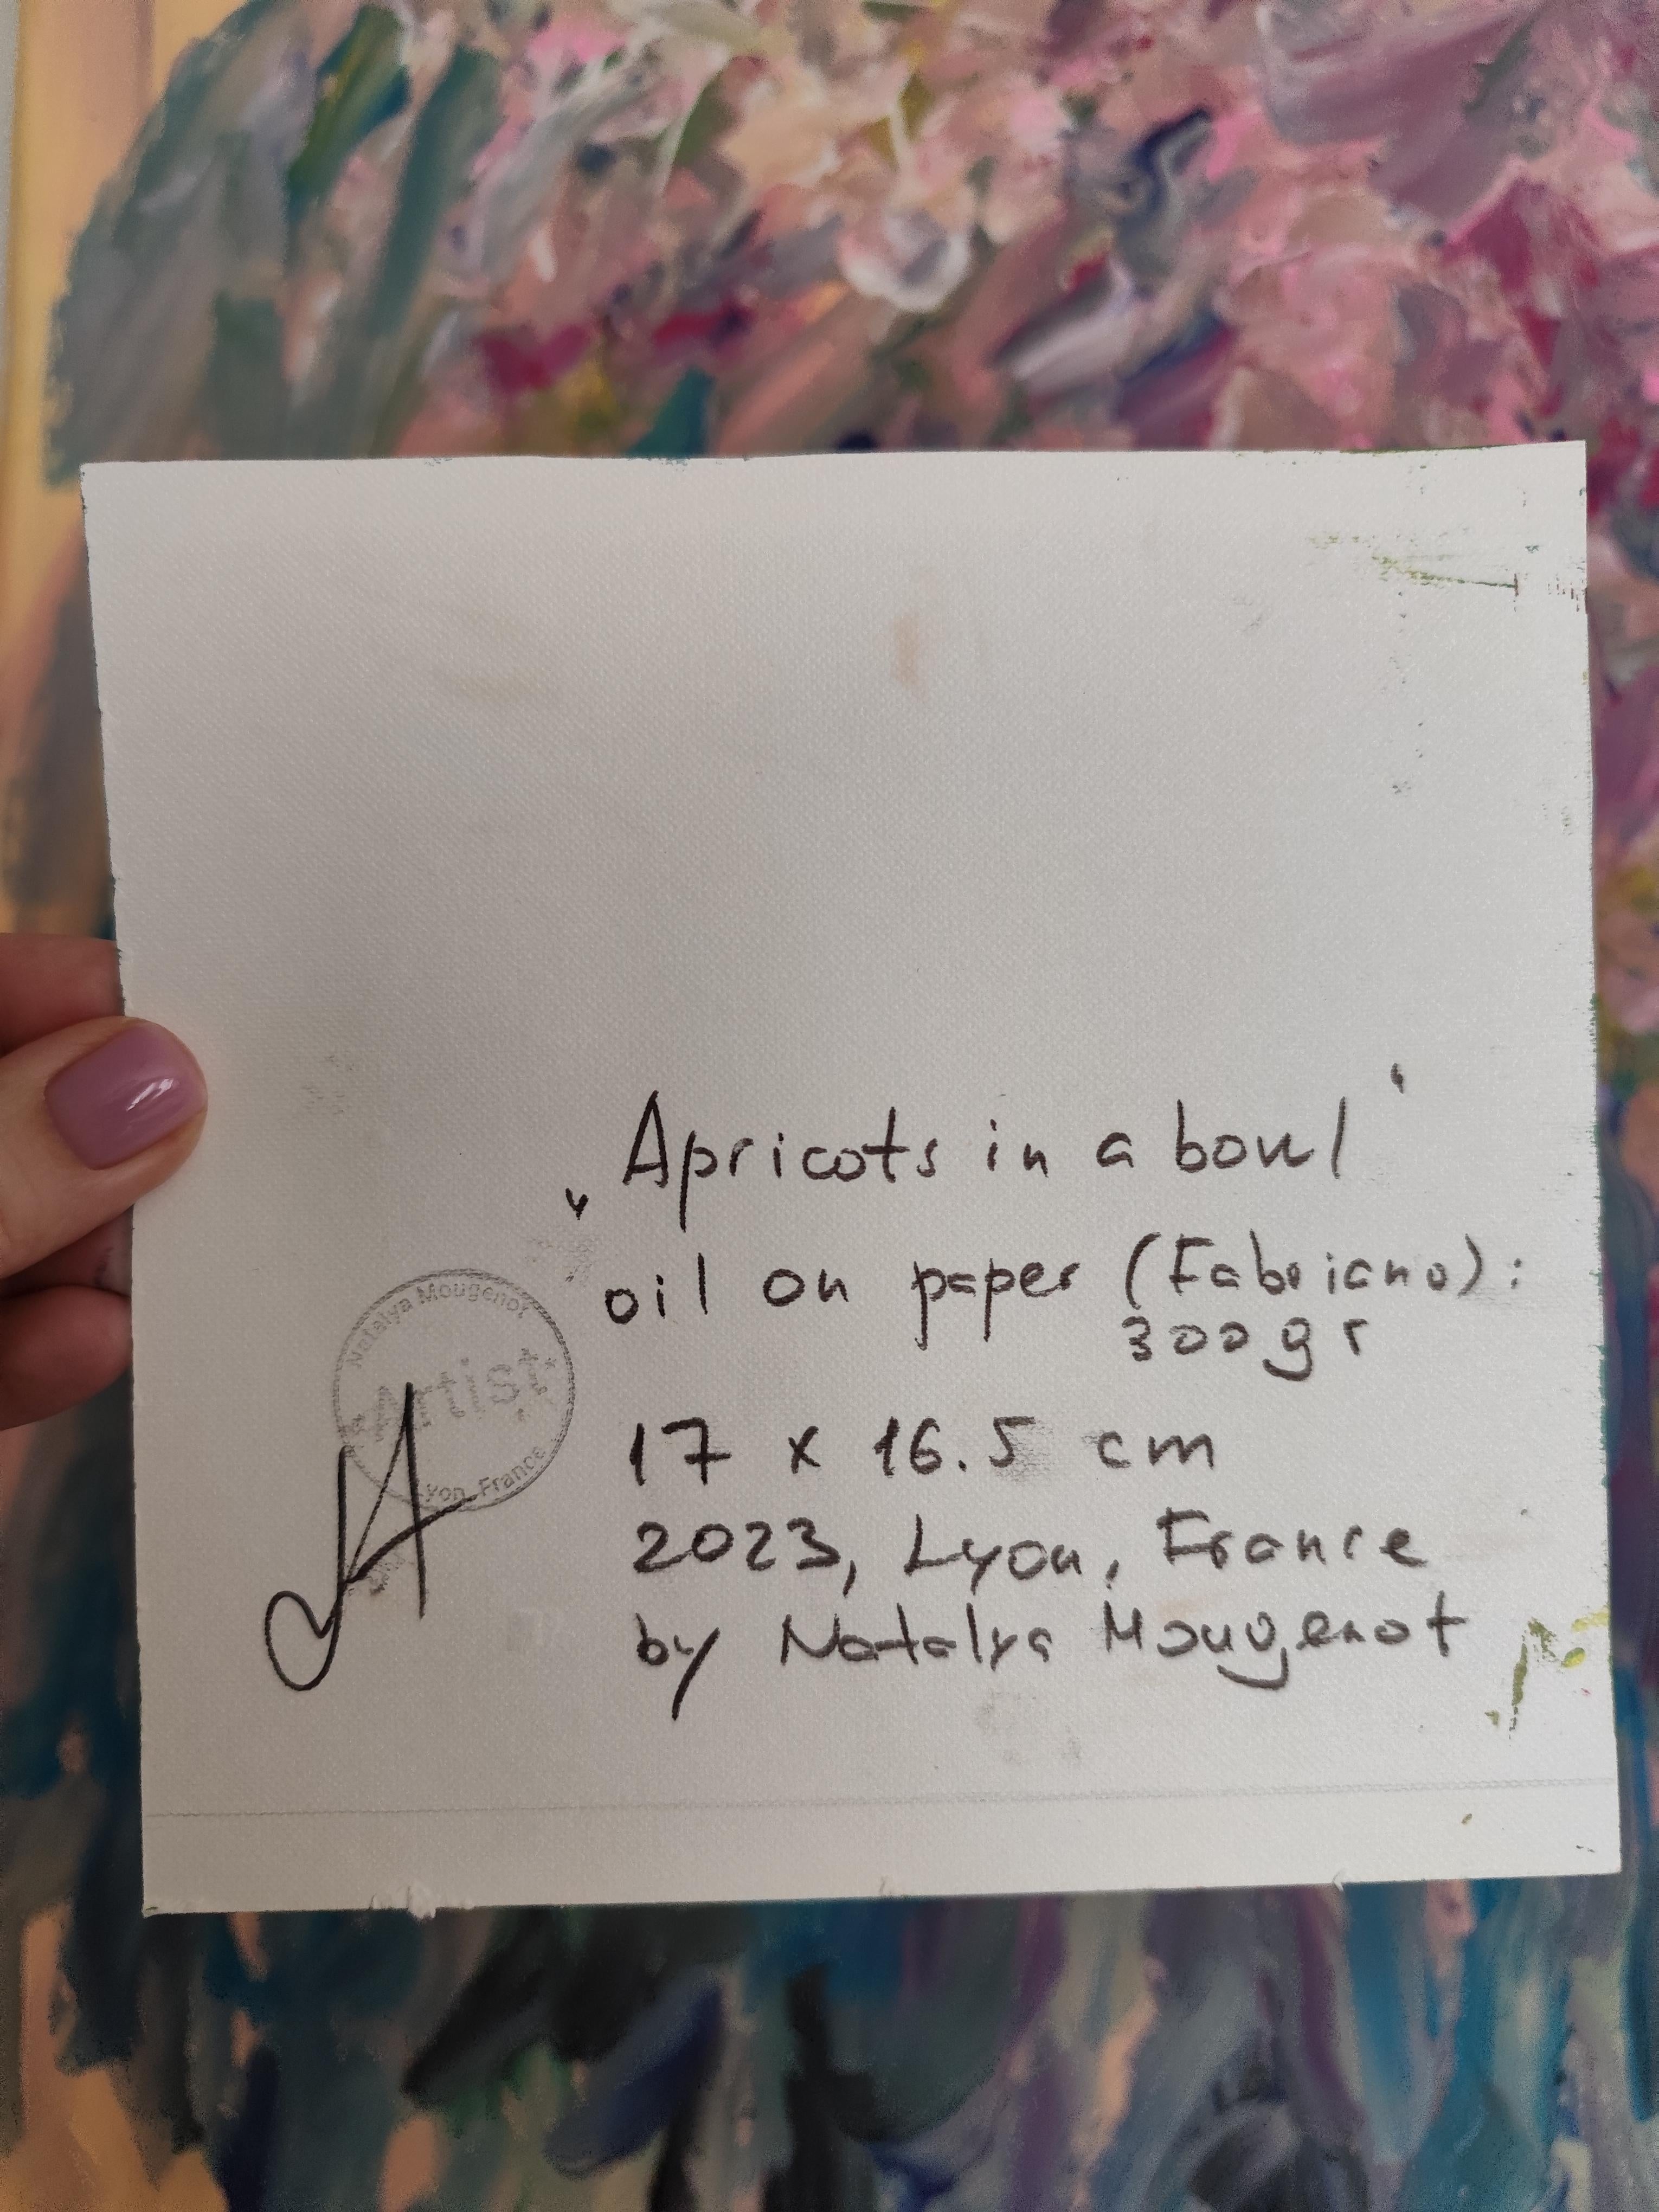 „Apricots in a bowl“
oil on paper (Fabriano):
300gr
17 x 16.5 cm
2023, Lyon, France
by Natalya Mougenot
Natalya Mougenot
Artist
Lyon, France